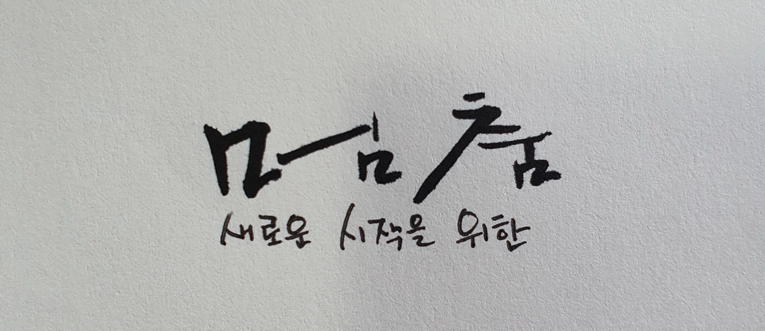 멈춤
새로운 시작을 위한